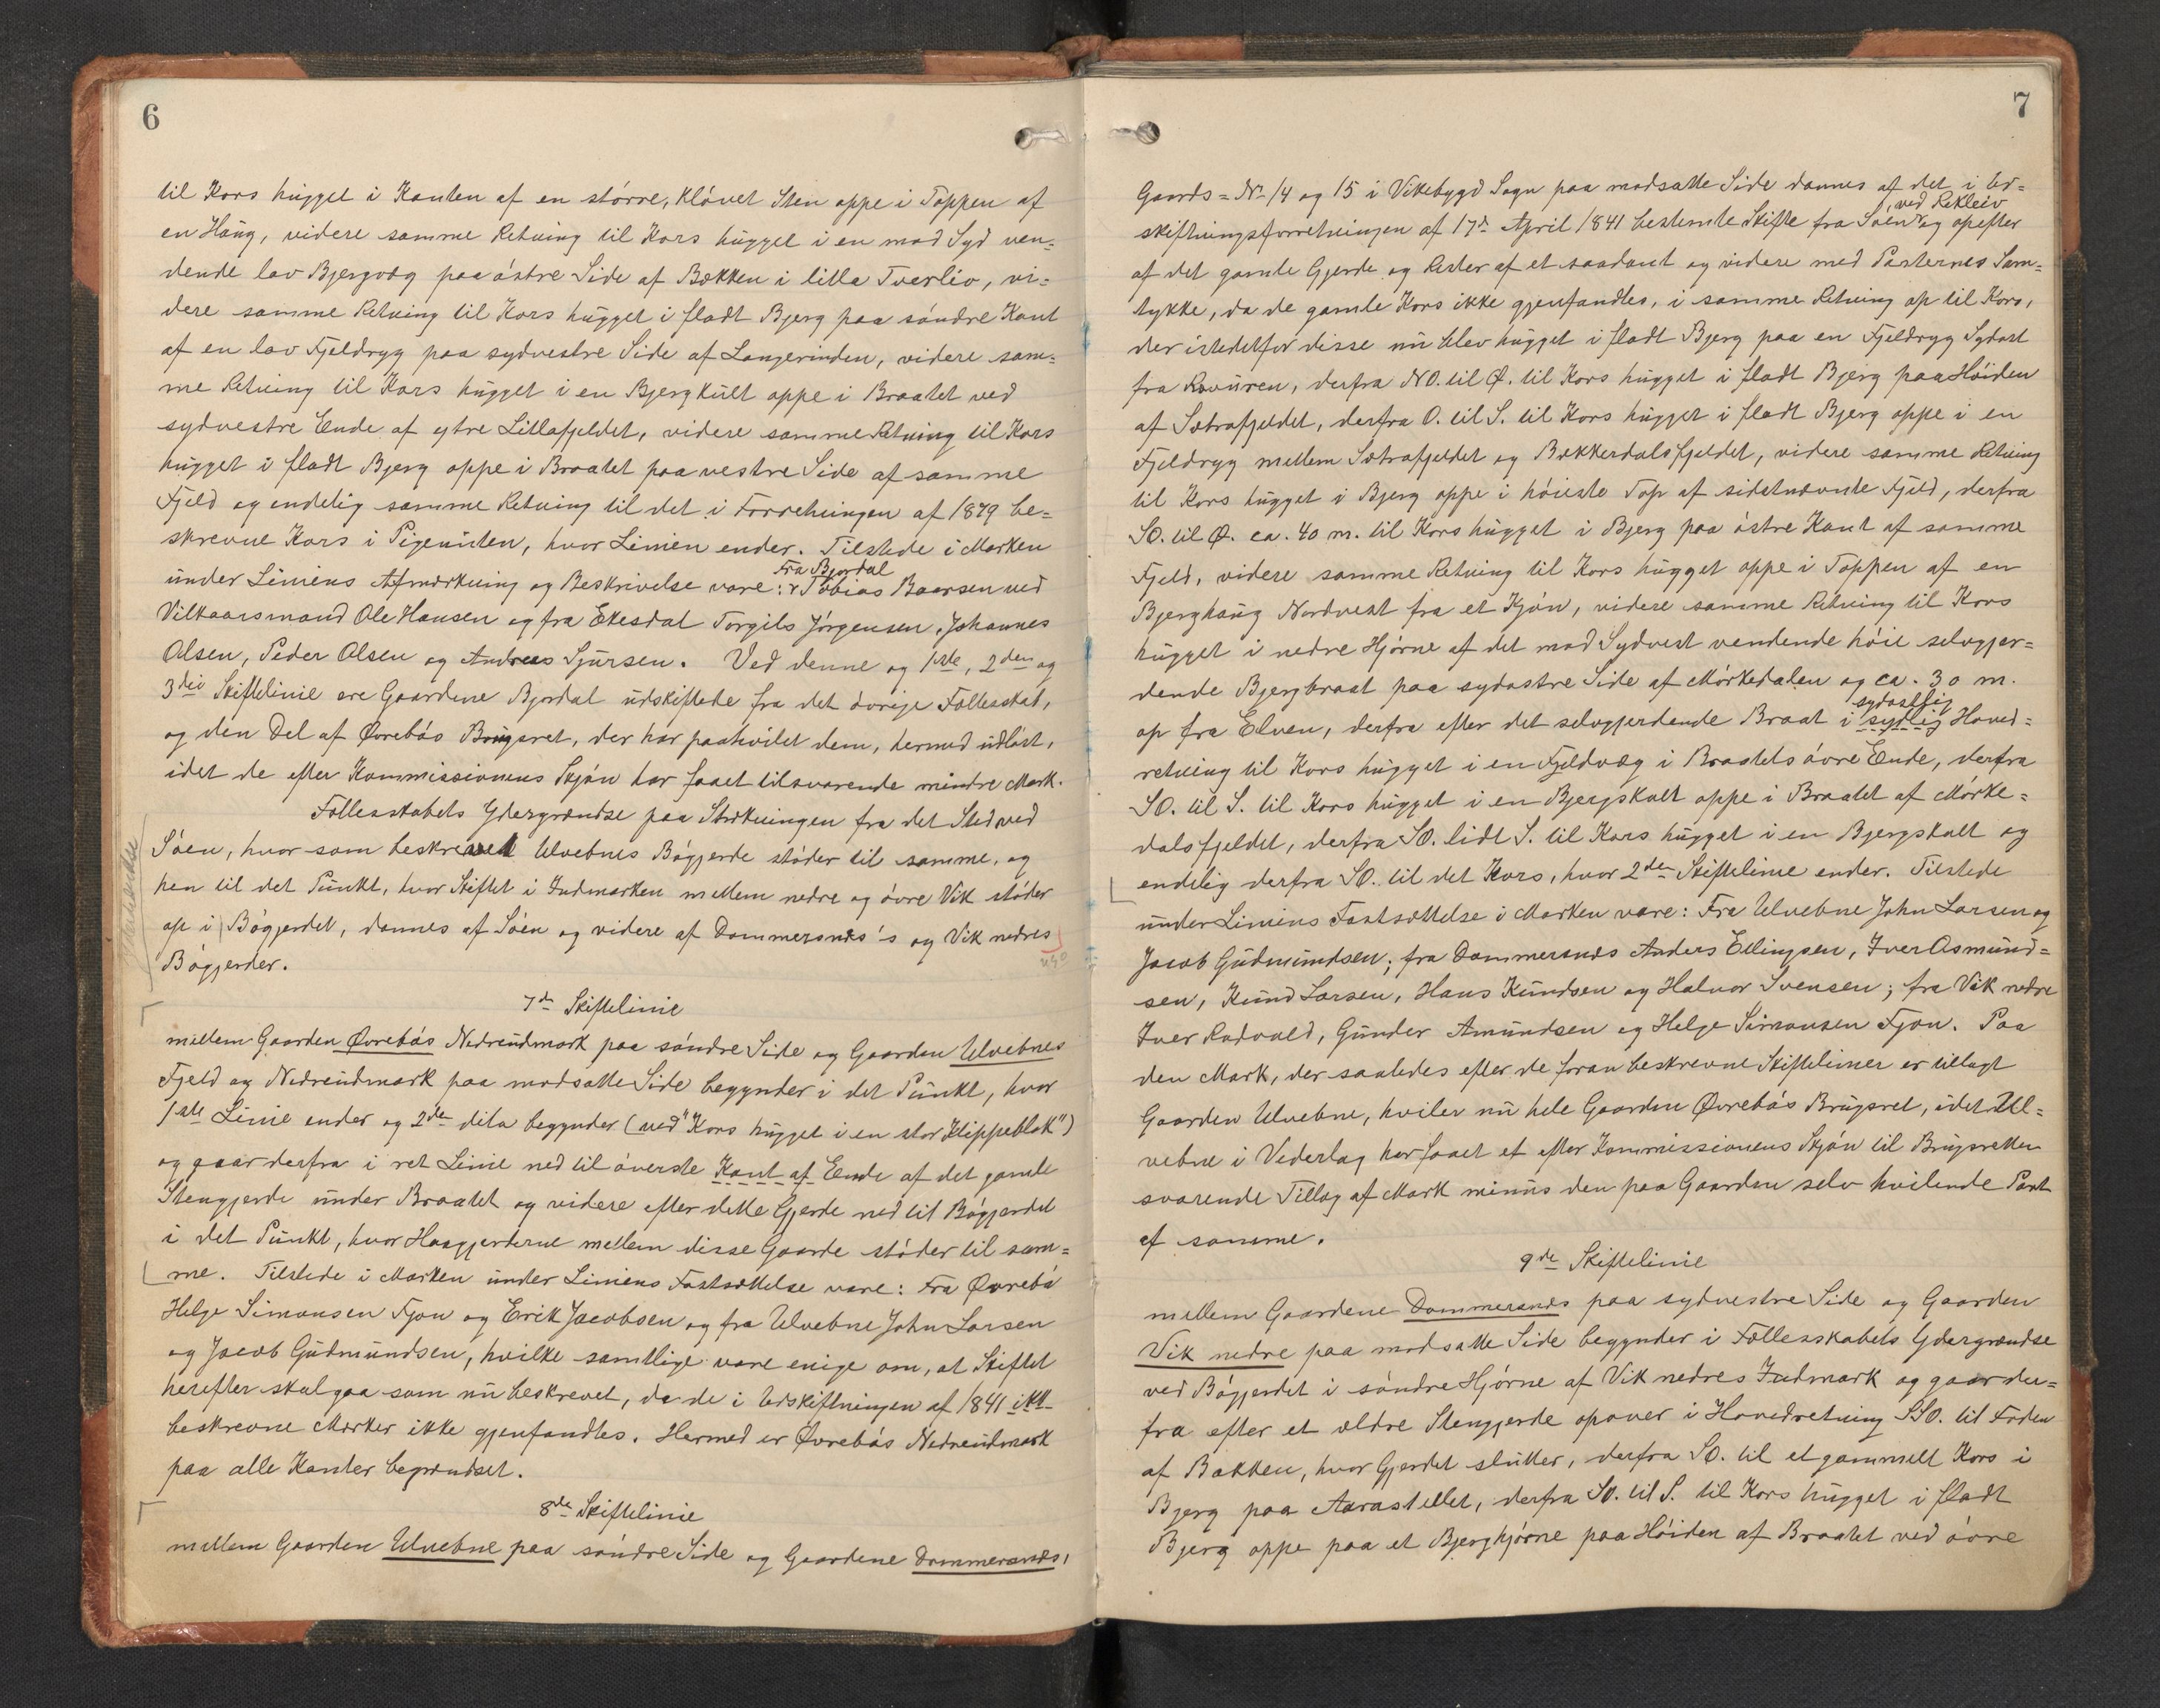 6
til Kors hugget i Kanten af en större, klövet Sten oppe i Toppen af
en Haug, videre samme Retning til Kors hugget i en mod Syd ven=
dende lav Bjergvæg paa östre Side af Bækken i litla Tverliv, vi=
dere samme Retning til Kors hugget i fladt Bjerg paa söndre Kant
af en lav Fjeldryg paa sydvestre Side af Langerinden, videre sam=
me Retning til Kors hugget i en Bjergkult oppe i Braatet ved
sydvestre Ende af ytre Litlafjeldet, videre samme Retning til Kors
hugget i fladt Bjerg oppe i Braatet paa vestre Side af samme
Fjeld og endelig samme Retning til det i Forretningen af 1879 be=
skrevne Kors i Pigenuten, hvor Linien ender. Tilstede i Marken
Fra Bjordal
under Liniens Afmærkning og Beskrivelse vare: Tobias Baarsen ved
Vilkaarsmand Ole Hansen og fra Ekesdal Torgils Jörgensen, Johannes
Olsen, Peder Olsen og Andreas Sjursen. Ved denne og 1ste, 2den og
3die Skiftelinie ere Gaardene Bjordal udskiftede fra det övrige Fællesskab,
og den Del af Øvrebös Brugsret, der har paahvilet dem, hermed udlöst,
idet de efter Kommissionens Skjön har faaet tilsvarende mindre Mark.
Fællesskabets Ydergrændse paa Strækningen fra det Sted ved
Söen, hvor som beskrevet Ulvebnes Bögjerde stöder til samme, og
hen til det Punkt, hvor Skiftet i Indmarken mellem nedre og övre Vik stöder
op i Bögjerdet, dannes af Söen og videre af Dommersnes's og Vik nedres
Bögjerder.
7de Skiftelinie
mellem Gaarden Øvrebös Nedreudmark paa söndre Side og Gaarden Ulvebnes
Fjeld og Nedreudmark paa modsatte Side begynder i det Punkt, hvor
1ste Linie ender og 2de dito begynder (ved "Kors hugget i en stor Klippeblok")
og gaar derfra i ret Linie ned til överste Kant af Ende af det gamle
Stengjerde under Braatet og videre efter dette Gjerde ned til Bögjerdet
i det Punkt, hvor Havgjerderne mellem disse Gaarde stöder til sam=
me. Tilstede i Marken under Liniens Fastsættelse vare: Fra Øvrebö
Helge Simonsen Fjon og Erik Jacobsen og fra Ulvebne John Larsen
og Jacob Gudmundsen, hvilke samtlige vare enige om, at Skiftet
herefter skal gaa som nu beskrevet, da de i Udskiftningen af 1841
beskrevne Mærker ikke gjenfandtes. Hermed er Øvrebös Nedreudmark
paa alle Kanter begrændset.
8de Skiftelinie
mellem Gaarden Ulvebne paa söndre Side og Gaardene Dommersnes,
7
Gaards=No 14 og 15 i Vikebygd Sogn paa modsatte Side dannes af det i Ud=
, ved Rekleiv
skiftningsforretningen af 17de April 1841 bestemte Skifte fra Söen og opefter
af det gamle Gjerde og Rester af et saadant og videre med Parternes Sam=
tykke, da de gamle Kors ikke gjenfandtes, i samme Retning op til Kors,
der istedetfor disse nu blev hugget i fladt Bjerg paa en Fjeldryg Sydost
fra Ravuren, derfra NO. til Ø. til Kors hugget i fladt Bjerg paa Höiden
af Sætrafjeldet, derfra O. til S. til Kors hugget i fladt Bjerg oppe i en
Fjeldryg mellem Sætrafjeldet og Bækkerdalsfjeldet, videre samme Retning
til Kors hugget i Bjerg oppe i höieste Top af sidstnævnte Fjeld, derfra
SO. til Ø. ca. 40 m. til Kors hugget i Bjerg paa östre Kant af samme
Fjeld, videre samme Retning til Kors hugget oppe i Toppen af en
Bjerghaug Nordvest fra et Kjön, videre samme Retning til Kors
hugget i nedre Hjörne af det mod Sydvest vendende höie selvgjer=
dende Bjergbraat paa sydostre Side af Mörkedalen og ca. 30 m.
sydostlig
op fra Elven, derfra efter det selvgjerdende Braat i sydlig Hoved=
retning til Kors hugget i en Fjeldvæg i Braatets övre Ende, derfra
SO. til S. til Kors hugget i en Bjergskalt oppe i Braatet af Mörke=
dalsfjeldet, derfra SO. lidt S. til Kors hugget i en Bjergskalt og
endelig derfra SO. til det Kors, hvor 2den Skiftelinie ender. Tilstede
under Liniens Fastsættelse i Marken vare: Fra Ulvebne John Larsen og
Jacob Gudmundsen; fra Dommersnes Anders Ellingsen, Iver Asmund=
sen, Knud Larsen, Hans Knudsen og Halvor Svensen; fra Vik nedre
Iver Rudvald, Gunder Amundsen og Helge Simonsen Fjon. Paa
den Mark, der saaledes efter de foran beskrevne Skiftelinier er tillagt
Gaarden Ulvebne, hviler nu hele Gaarden Øvrebös Brugsret, idet Ul=
vebne i Vederlag har faaet et efter Kommissionens Skjön til Brugsretten
svarende Tillæg af Mark minus den paa Gaarden selv hvilende Part
af samme.
9de Skiftelinie
mellem Gaardene Dommersnes paa sydvestre Side og Gaarden
Vik nedre paa modsatte Side begynder i Fællesskabets Ydergrændse
ved Bögjerdet i söndre Hjörne af Vik nedres Indmark og gaar der=
fra efter et ældre Stengjerde opover i Hovedretning SSO. til Foden
af Bakken, hvor Gjerdet slutter, derfra SO. til et gammelt Kors i
Bjerg paa Aarastellet, derfra SO. til S. til Kors hugget i fladt
Bjerg oppe paa et Bjerghjörne paa Höiden af Braatet ved övre